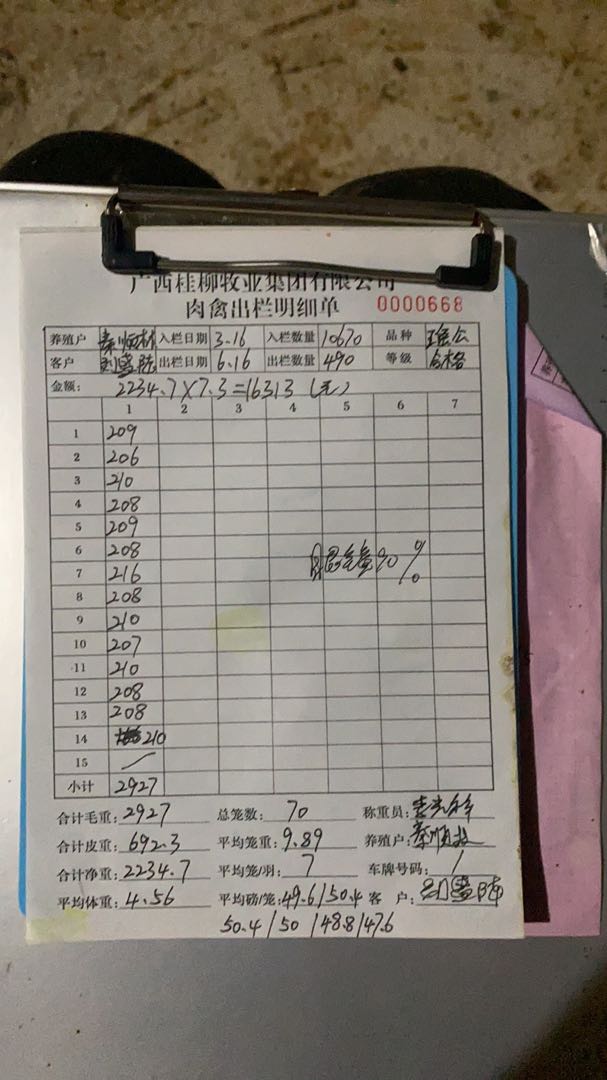 广西桂柳牧业集团有限公司
肉禽出栏明细单 0000668
养殖户 秦顺林 入栏日期 3.16 入栏数量 10670 品种
客户 出栏日期 6.16 出栏数量 490 等级 合格
金额: 2234.7×7.3=16313（元）
1 2 3 4 5 6 7
1 209
2 206
3 210
4 208
5 209
6 208
7 216
8 208
9 210
10 207
11 210
12 208
13 208
14 210
15 /
小计 2927
90%
合计毛重: 2927 总笼数: 70 称重员:
合计皮重: 692.3 平均笼重: 9.89 养殖户: 秦顺
合计净重: 2234.7 平均笼/羽: 7 车牌号码: /
平均体重: 4.56 平均磅/笼: 49.6/50.4 客户:
50.4/50/48.8/47.6